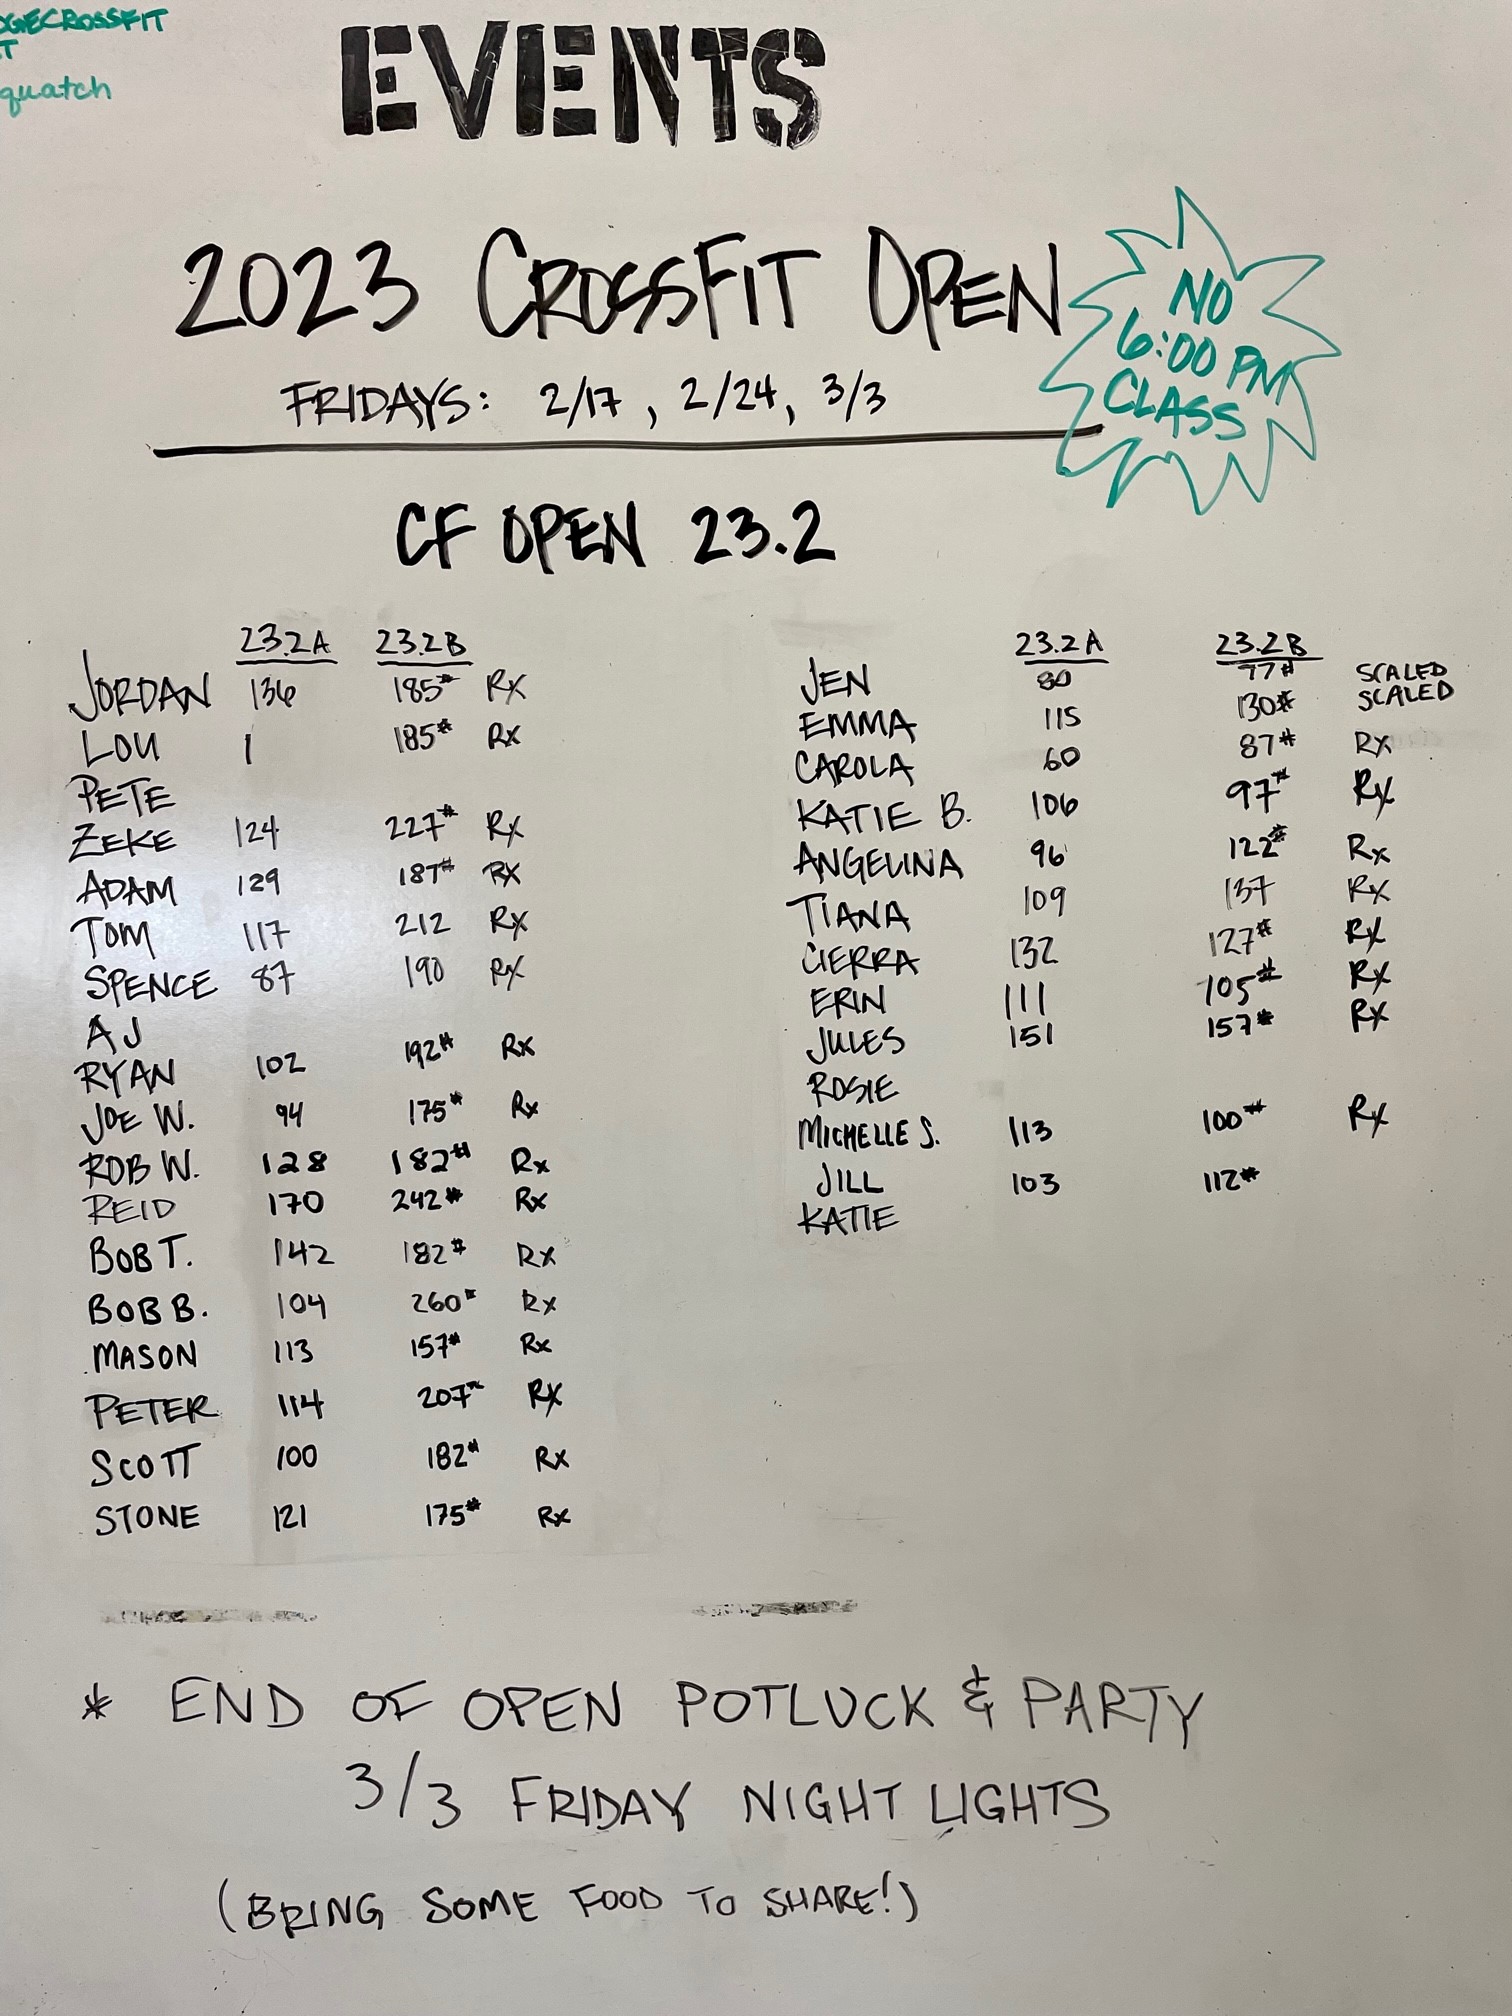 OGECROSSFIT
T
quatch
EVENTS
2023 CROSSFIT OPEN
FRIDAYS: 2/17, 2/24, 3/3
NO
6:00 PM
CLASS
CF OPEN 23.2
23.2A 23.2B
JORDAN 136 185# Rx
LOU 1 185# Rx
PETE
ZEKE 124 227# Rx
ADAM 129 187# Rx
TOM 117 212 Rx
SPENCE 87 190 Rx
AJ
RYAN 102 192# Rx
JOE W. 94 175# Rx
ROB W. 128 182# Rx
REID 170 242# Rx
BOB T. 142 182# Rx
BOB B. 104 260# Rx
MASON 113 157# Rx
PETER 114 207# Rx
SCOTT 100 182# Rx
STONE 121 175# Rx
23.2A 23.2B
JEN 80 77# SCALED
EMMA 115 130# SCALED
CAROLA 60 87# Rx
KATIE B. 106 97# Rx
ANGELINA 96 122# Rx
TIANA 109 137 Rx
CIERRA 132 127# Rx
ERIN 111 105# Rx
JULES 151 157# Rx
ROSIE
MICHELLE S. 113 100# Rx
JILL 103 112#
KATIE
* END OF OPEN POTLUCK & PARTY
3/3 FRIDAY NIGHT LIGHTS
(BRING SOME FOOD TO SHARE!)